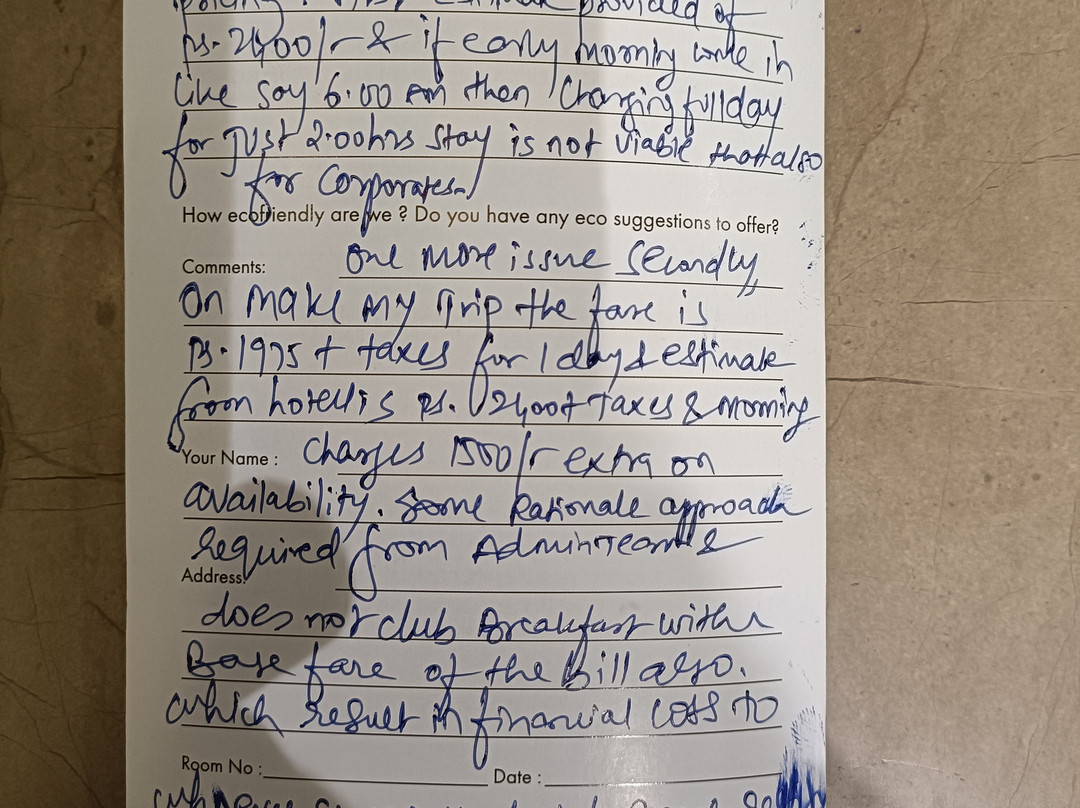 estimate provided of
Rs. 2400/- & if early morning come in
like say 6.00 Am then Charging fullday
for Just 2.00hrs stay is not viable that also
for Corporates.
How ecofriendly are we ? Do you have any eco suggestions to offer?
Comments: One more issue Secondly,
On Make My Trip the fare is
Rs. 1975 + taxes for 1 day & estimate
from hotel is Rs. 2400+ taxes & morning
Your Name : charges 1500/- extra on
availability. Some Rationale approach
required from Admin Team &
Address:
does not club Breakfast with
Base fare of the bill also.
which result in financial loss to
Room No : Date :